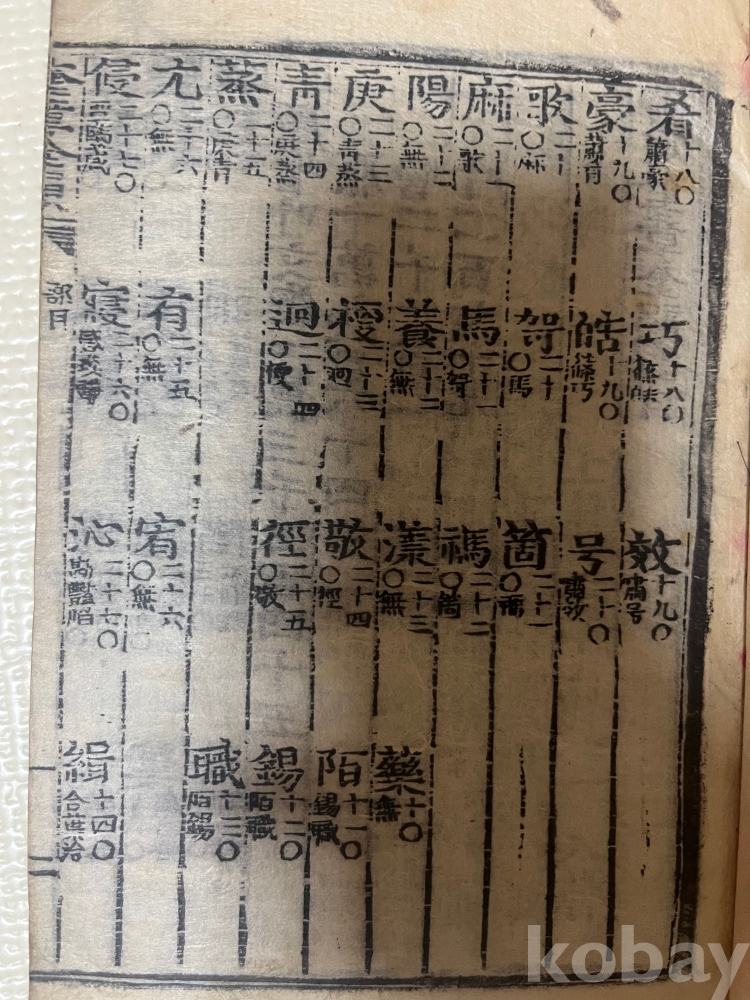 肴十八○蕭豪 巧十八○篠皓 效十九○嘯号
豪十九○蕭肴 皓十九○篠巧 号二十○嘯效
歌二十○麻 哿二十○馬 箇二十一○禡
麻二十一○歌 馬二十一○哿 禡二十二○箇
陽二十二○無 養二十二○無 漾二十三○無 藥十○無
庚二十三○青蒸 梗二十三○迥 敬二十四○徑 陌十一○錫職
青二十四○庚蒸 迥二十四○梗 徑二十五○敬 錫十二○陌職
蒸二十五○庚青 職十三○陌錫
尤二十六○無 有二十五○無 宥二十六○無
侵二十七○覃鹽咸 寑二十六○感琰豏 沁二十七○勘豔陷 緝十四○合葉洽
奎章全韻 部目 二
kobay